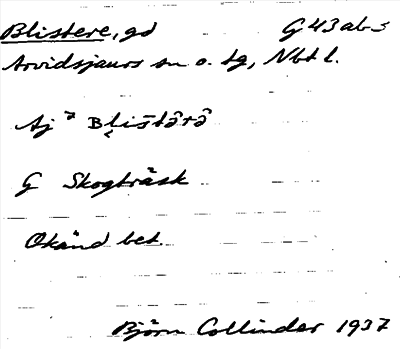 Blistere, gd G 43 ab s
Arvidsjaurs sn o. tg, Nbt l.
Aj
G Skogträsk
Okänd bet.
Björn Collinder 1937